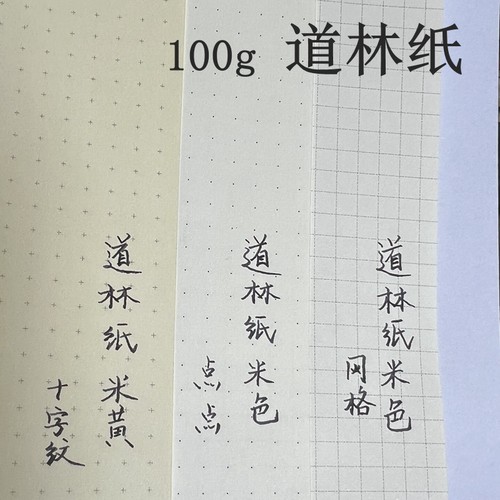 100g 道林纸
道林纸 米黄
十字纹
道林纸米色
点点
道林纸米色
网格